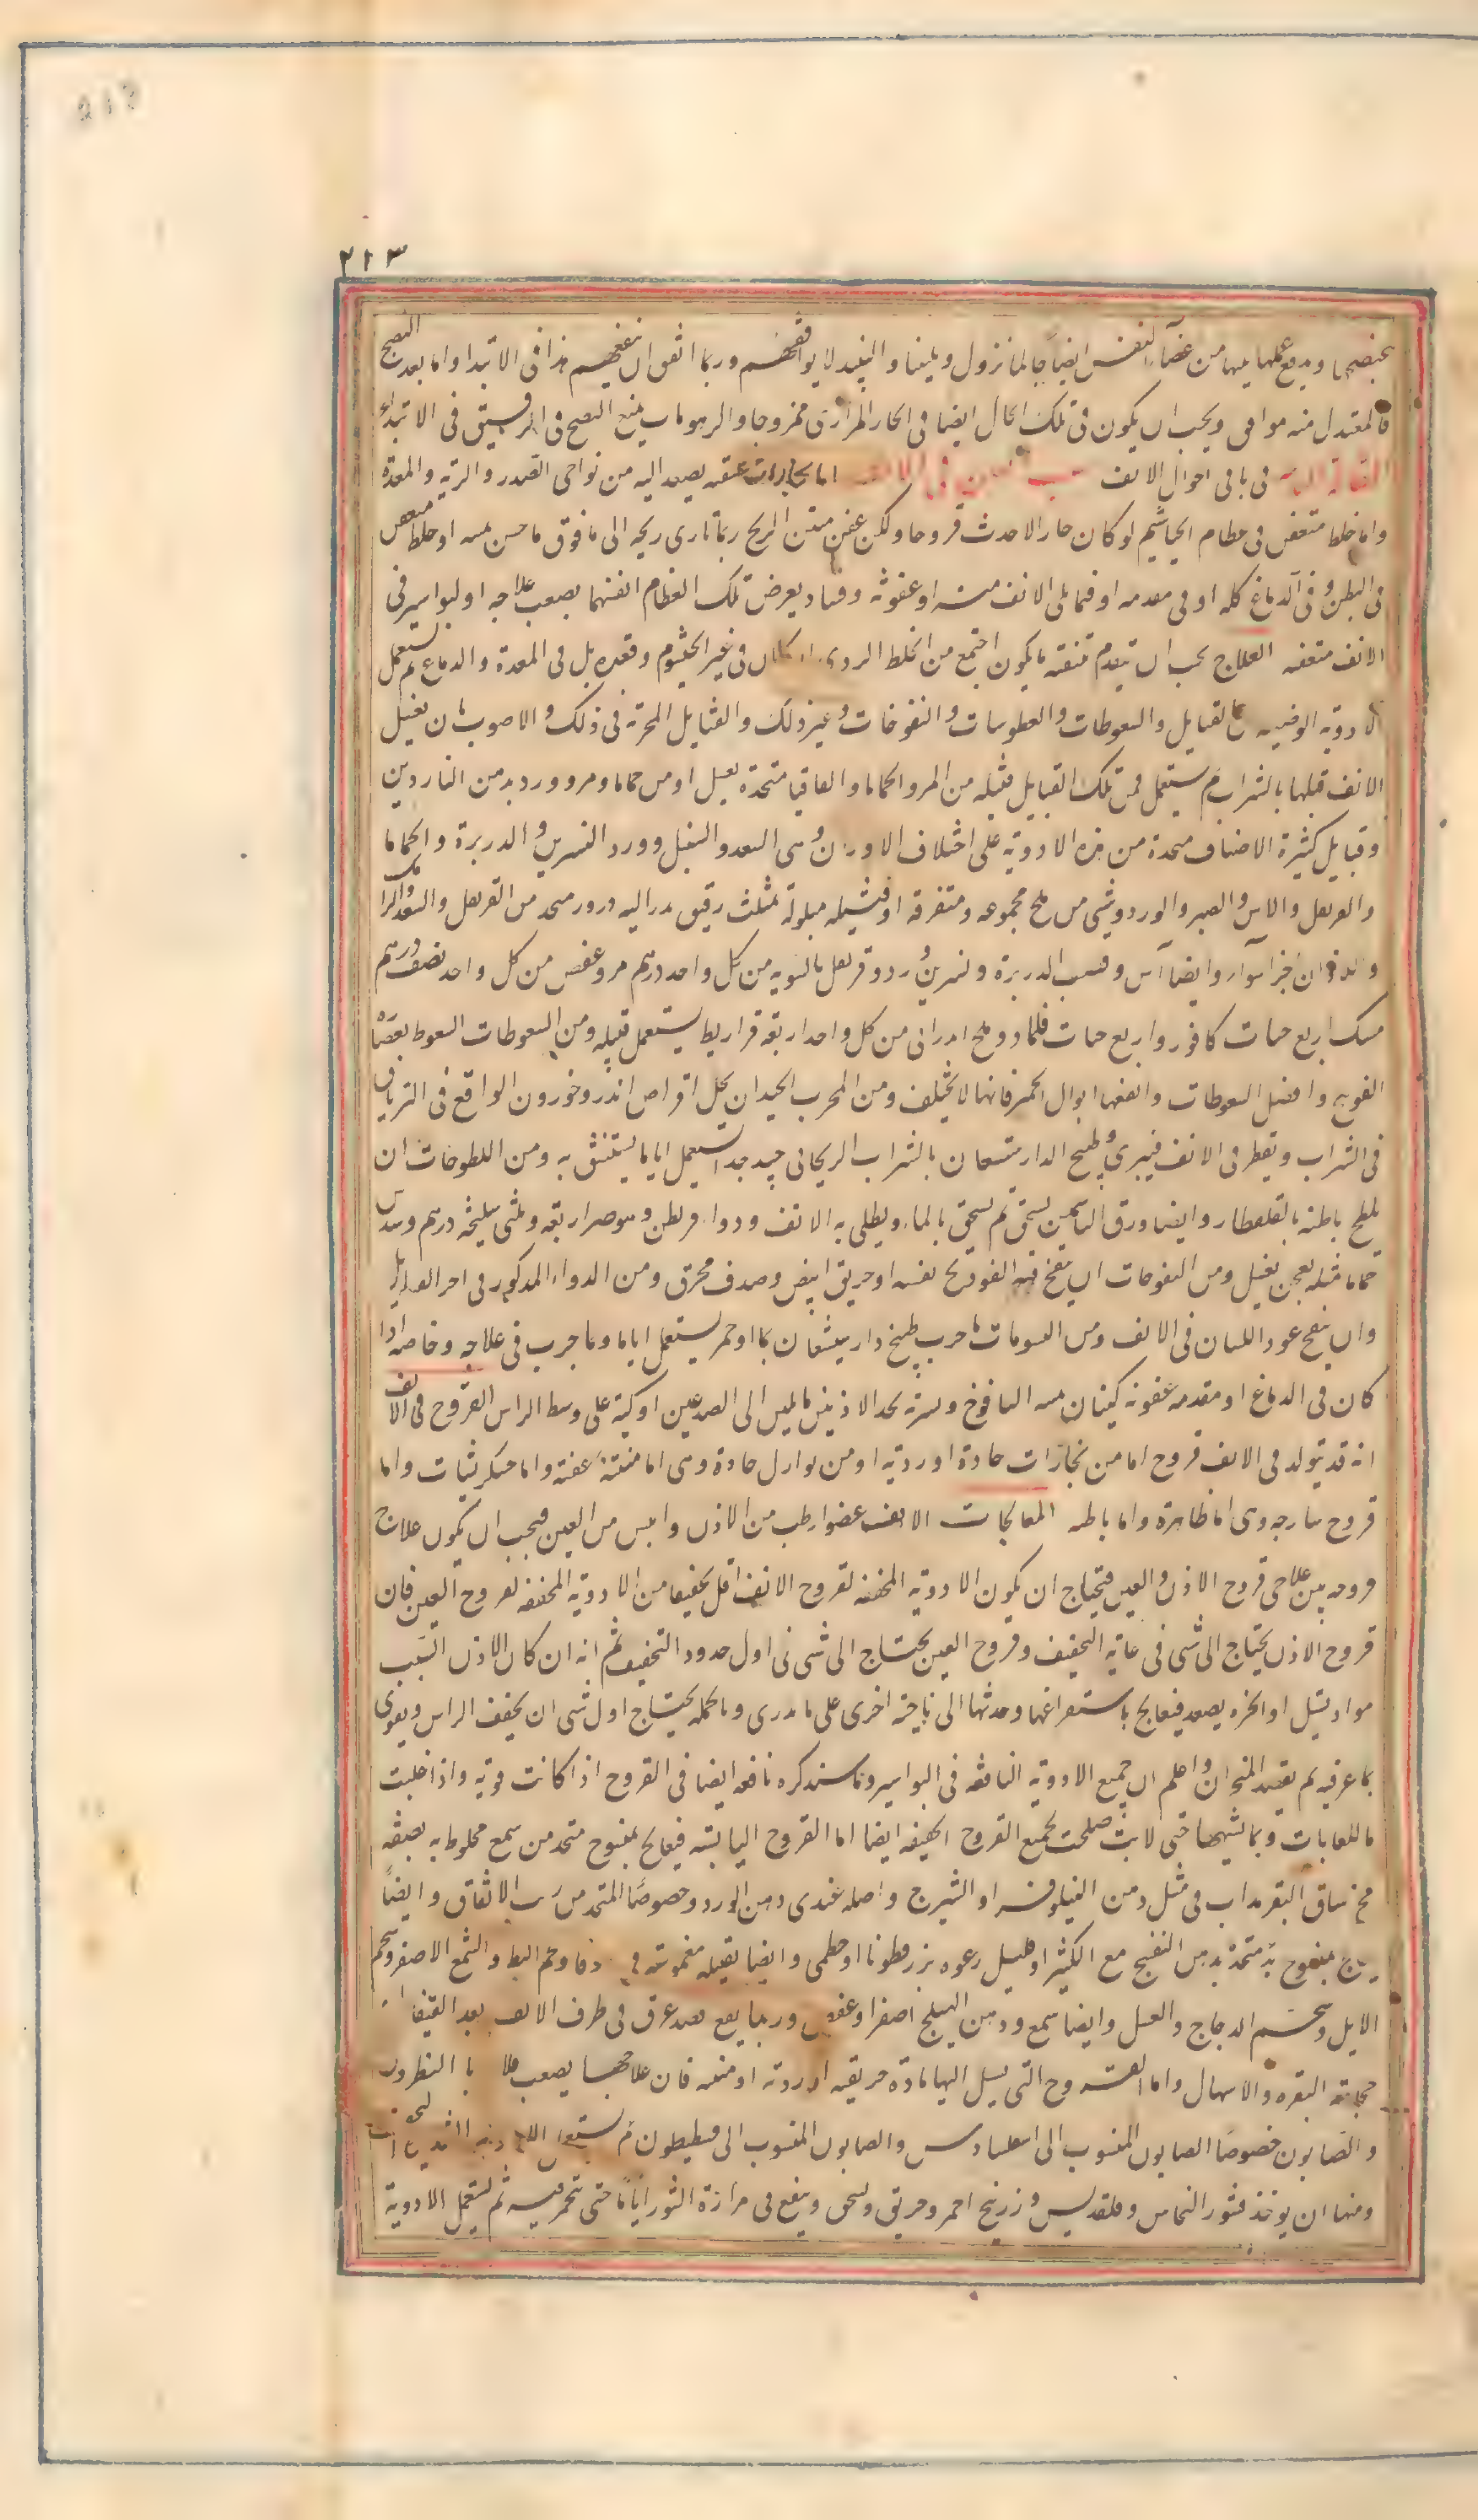 ٢١٣
ويدفع عملها من اعضاء النفس ايضا جالما نزول ويلينها والنبيذ لا يوافقهم وربما اتفق ان ينفعهم هذا فى الابتدا واما بعد النضج
فالمعتدل منه موافق ويجب ان يكون فى تلك الحال ايضا فى الحار المرارى ممزوجا والرسومات يمنع النضج فى الرقيق فى الابتداء
فى باقى احوال الانف اما بخارات عفنه يصعد اليه من نواحى الصدر والريه والمعدة
واما خلط متعفن فى عظام الخياشيم لو كان حارا لاحدث قروحا ولكن عفن منتن الريح ربما تادى ريحه الى ما فوق او خلط متعفن
فى البطن وفى الدماغ كله او فى مقدمه او فيما يلى الانف منه او عفونة وفساد يعرض تلك العظام انفسها يصعب علاجه او لبواسير فى
الانف متعفنه العلاج يجب ان يتقدم تنقيه ما يكون اجتمع من الخلط الردى ان كان فى غير الخيشوم وقعره بل فى المعدة والدماغ ثم يستعمل
الادويه الموضعيه كالفتايل والسعوطات والعطوسات والنفوخات وغير ذلك والفتايل المجربة فى ذلك والاصوب ان يغسل
الانف قبلها بالشراب ثم يستعمل فمن تلك الفتايل فتيله من المر والحماما والقاقيا متخذة بعسل او من حماما ومر وورد بدهن الناردين
وفتايل كثيرة الاصناف متخذة من هذه الادويه على اختلاف الاوزان وهى السعد والسنبل وورد النسرين والذريرة والحماما
والقرنفل والاس والصبر والورد وشى من ملح مجموعه ومتفرقه او فتيله مبلولة بمثلث رقيق يذر اليه ذرور متخذ من القرنفل والسعد والرامك
واللاذن اجزا سواء وايضا آس وقصب الذريرة ونسرين وورد وقرنفل بالسويه من كل واحد درهم مر وعفص من كل واحد نصف درهم
مسك اربع حبات كافور واربع حبات وملح اندرانى من كل واحد اربعه قراريط يستعمل فتيله ومن السعوطات السعوط بعصارة
الفوتنج وافضل السعوطات وانفعها ابوال الحمير فانها لا يختلف ومن المجرب الجيد ان يحل اقراص اندروخورون الواقع فى الترياق
فى الشراب ويقطر فى الانف فيبرى وطبيخ الدارشيشعان بالشراب الريحانى جيد جدا يستعمل اياما يستنشق به ومن اللطوخات ان
يلطخ باطنه بالقلقطار وايضا ورق الياسمين يسحق ثم يسحق بالماء ويطلى به الانف ودواء قريطن وهو مر اربعه وثلثى سليخه درهم وسدس
حماما مثله يعجن بعسل ومن النفوخات ان ينفخ فيه الفوتنج نفسه او خربق ابيض وصدف محرق ومن الدواء المذكور فى اخر الفتايل
وان ينفخ عود البلسان فى الانف ومن النشوقات ما جرب طبيخ دارشيشعان بماء او خمر يستعمل اياما وما جرب فى علاجه وخاصه اذا
كان فى الدماغ او مقدمه عفونه كيتان اليافوخ بحذا الاذنين مايلين الى الصدغين او كية على وسط الراس القروح فى الانف
انه قد يتولد فى الانف قروح اما من بخارات حادة او ردية او من نوازل حادة وهى اما منتنة عفنه واما خشكريشات واما
قروح سارجه وهى اما ظاهرة واما باطنه المعالجات الانف عضو ارطب من الاذن وايبس من العين فيجب ان يكون علاج
قروحه بين علاجى قروح الاذن والعين فتحتاج ان يكون الادويه المجففه لقروح الانف اقل تجفيفا من الادويه المجففه لقروح العين فان
قروح الاذن يحتاج الى شى فى غاية التجفيف وقروح العين يحتاج الى شى فى اول حدود التجفيف ثم انه ان كان الاذن السبب
مواد يسيل او ابخرة يصعد فيعالج باستفراغها وجذبها الى ناحية اخرى على ما تدرى وبالجملة يحتاج اول شى ان يجفف الراس ويقوى
بما عرفته ثم يقصد المنخران واعلم ان جميع الادوية النافعه فى البواسير وما سنذكره نافعه ايضا فى القروح اذا كانت قوية واذا غلبت
باللعابات وبما يشبهها حتى لانت صلحت لجميع القروح الخفيفه ايضا اما القروح اليابسة فيعالج بمسوح متخذ من شمع مخلوط به نصفه
مخ ساق البقر مذاب فى مثل دهن النيلوفر او الشيرج واصله عندى دهن الورد وخصوصا المتخذ من زيت الانفاق وايضا
يعالج بمسوح متخذ بدهن البنفسج مع الكثيرا وقليل رغوه بزر قطونا او خطمى وايضا بفتيله مغموسه فى زوفا وشحم البط والشمع الاصفر وشحم
الايل وشحم الدجاج والعسل وايضا شمع ودهن اهليلج اصفر او عفص وربما ينفع فصد عرق فى طرف الانف بعد القيفال
حجامه النقره والاسهال واما القروح التى يسيل اليها مادة حريفه او ردية او منتنه فان علاجها يصعب بالنطرون
والصابون خصوصا الصابون المنسوب الى والصابون المنسوب الى قسطيطون ثم يستعمل الادويه
ومنها ان يوخذ قشور النحاس وقلقديس وزرنيخ احمر وخربق ويسحق وينقع فى مرارة الثور اياما حتى يتخمر فيه ثم يستعمل الادوية